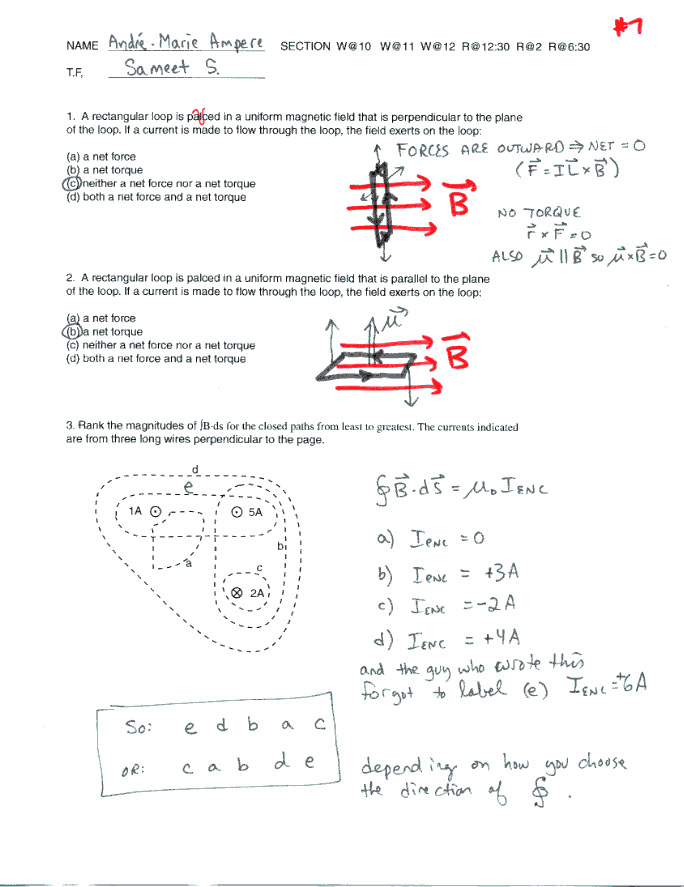 #1
NAME André-Marie Ampere SECTION W@10 W@11 W@12 R@12:30 R@2 R@6:30
T.F, Sameet S.
1. A rectangular loop is palced in a uniform magnetic field that is perpendicular to the plane
of the loop. If a current is made to flow through the loop, the field exerts on the loop:
(a) a net force
(b) a net torque
(c) neither a net force nor a net torque
(d) both a net force and a net torque
FORCES ARE OUTWARD ⇒ NET = 0
(F⃗ = IL⃗ × B⃗)
B⃗
NO TORQUE
r⃗ × F⃗ = 0
ALSO μ⃗ || B⃗ so μ⃗ × B⃗ = 0
2. A rectangular loop is palced in a uniform magnetic field that is parallel to the plane
of the loop. If a current is made to flow through the loop, the field exerts on the loop:
(a) a net force
(b) a net torque
(c) neither a net force nor a net torque
(d) both a net force and a net torque
μ⃗
B⃗
3. Rank the magnitudes of ∫B·ds for the closed paths from least to greatest. The currents indicated
are from three long wires perpendicular to the page.
d
e
1A
5A
b
a
c
2A
∮B⃗·ds⃗ = μ₀ I ENC
a) I ENC = 0
b) I ENC = +3A
c) I ENC = -2A
d) I ENC = +4A
and the guy who wrote this
forgot to label (e) I ENC = +6A
So: e d b a c
OR: c a b d e
depending on how you choose
the direction of ∮.